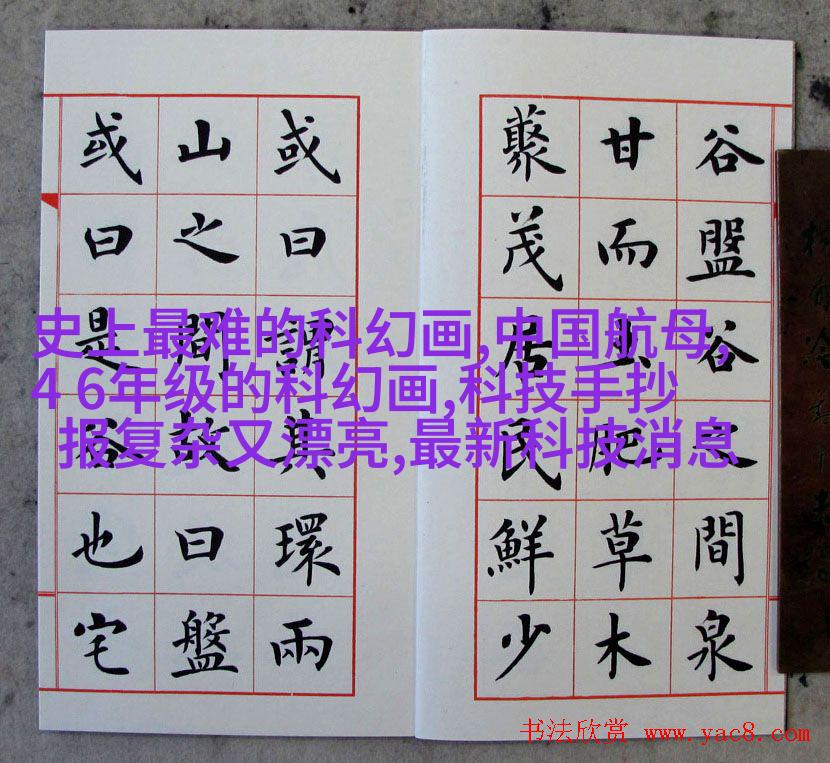 谷盤谷之間泉
甘而土肥草木
藂茂居民鮮少
或曰謂其環兩
山之間故曰盤
或曰是谷也宅
史上最难的科幻画,中国航母,
4 6年级的科幻画,科技手抄
报复杂又漂亮,最新科技消息
书法欣赏 www.yac8.com